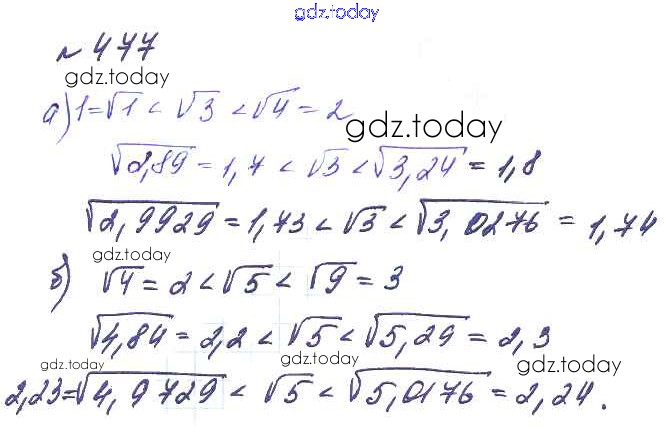 gdz.today
№ 477
gdz.today
а) 1=√1 < √3 < √4 = 2
gdz.today
√2,89 = 1,7 < √3 < √3,24 = 1,8
√2,9929 = 1,73 < √3 < √3,0276 = 1,74
gdz.today
б) √4 = 2 < √5 < √9 = 3
√4,84 = 2,2 < √5 < √5,29 = 2,3
gdz.today gdz.today gdz.today
2,23=√4,9729 < √5 < √5,0176 = 2,24.